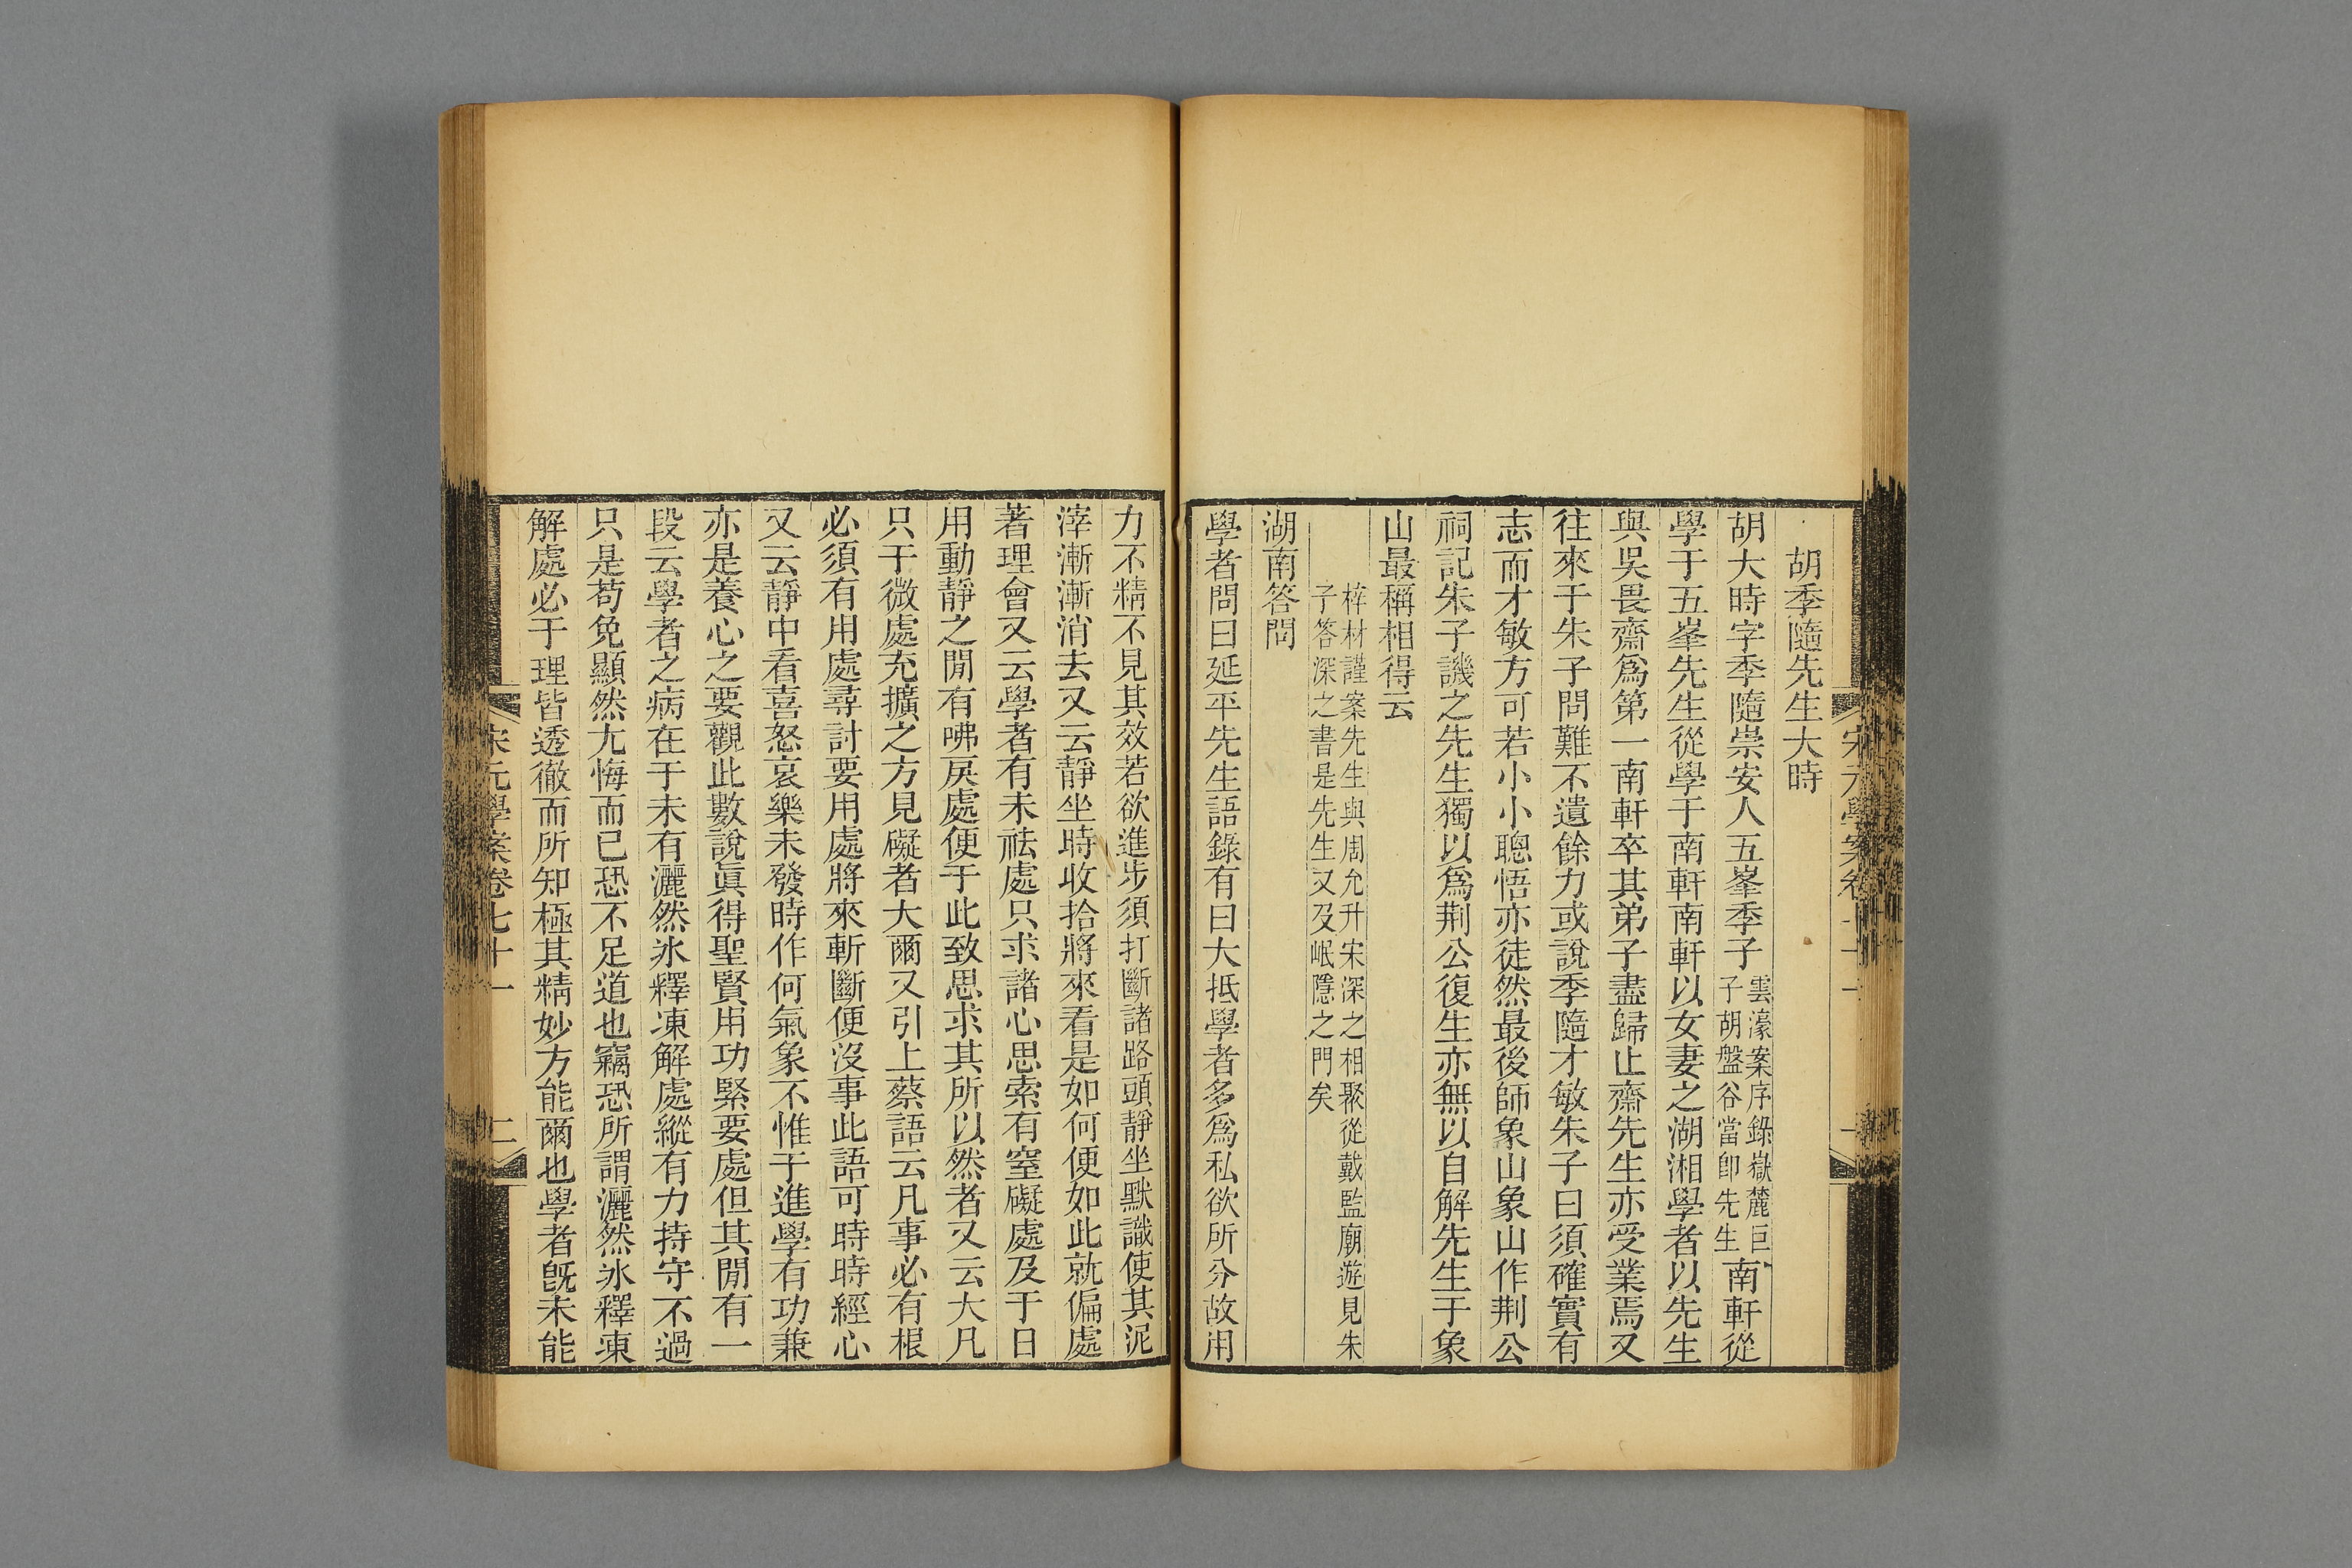 胡季隨先生大時
胡大時字季隨崇安人五峯季子雲濠案序錄嶽麓巨子胡盤谷當卽先生南軒從
學于五峯先生從學于南軒南軒以女妻之湖湘學者以先生
與吳畏齋爲第一南軒卒其弟子盡歸止齋先生亦受業焉又
往來于朱子問難不遺餘力或說季隨才敏朱子曰須確實有
志而才敏方可若小小聰悟亦徒然最後師象山象山作荆公
祠記朱子譏之先生獨以爲荆公復生亦無以自解先生于象
山最稱相得云
梓材謹案先生與周允升宋深之相聚從戴監廟遊見朱
子答深之書是先生又及岷隱之門矣
湖南答問
學者問曰延平先生語錄有曰大抵學者多爲私欲所分故用
力不精不見其效若欲進步須打斷諸路頭靜坐默識使其泥
滓漸漸消去又云靜坐時收拾將來看是如何便如此就偏處
著理會又云學者有未祛處只求諸心思索有窒礙處及于日
用動靜之閒有咈戾處便于此致思求其所以然者又云大凡
只于微處充擴之方見礙者大爾又引上蔡語云凡事必有根
必須有用處尋討要用處將來斬斷便沒事此語可時時經心
又云靜中看喜怒哀樂未發時作何氣象不惟于進學有功兼
亦是養心之要觀此數說眞得聖賢用功緊要處但其閒有一
段云學者之病在于未有灑然冰釋凍解處縱有力持守不過
只是苟免顯然尤悔而已恐不足道也竊恐所謂灑然冰釋凍
解處必于理皆透徹而所知極其精妙方能爾也學者旣未能
宋元學案卷七十一
二